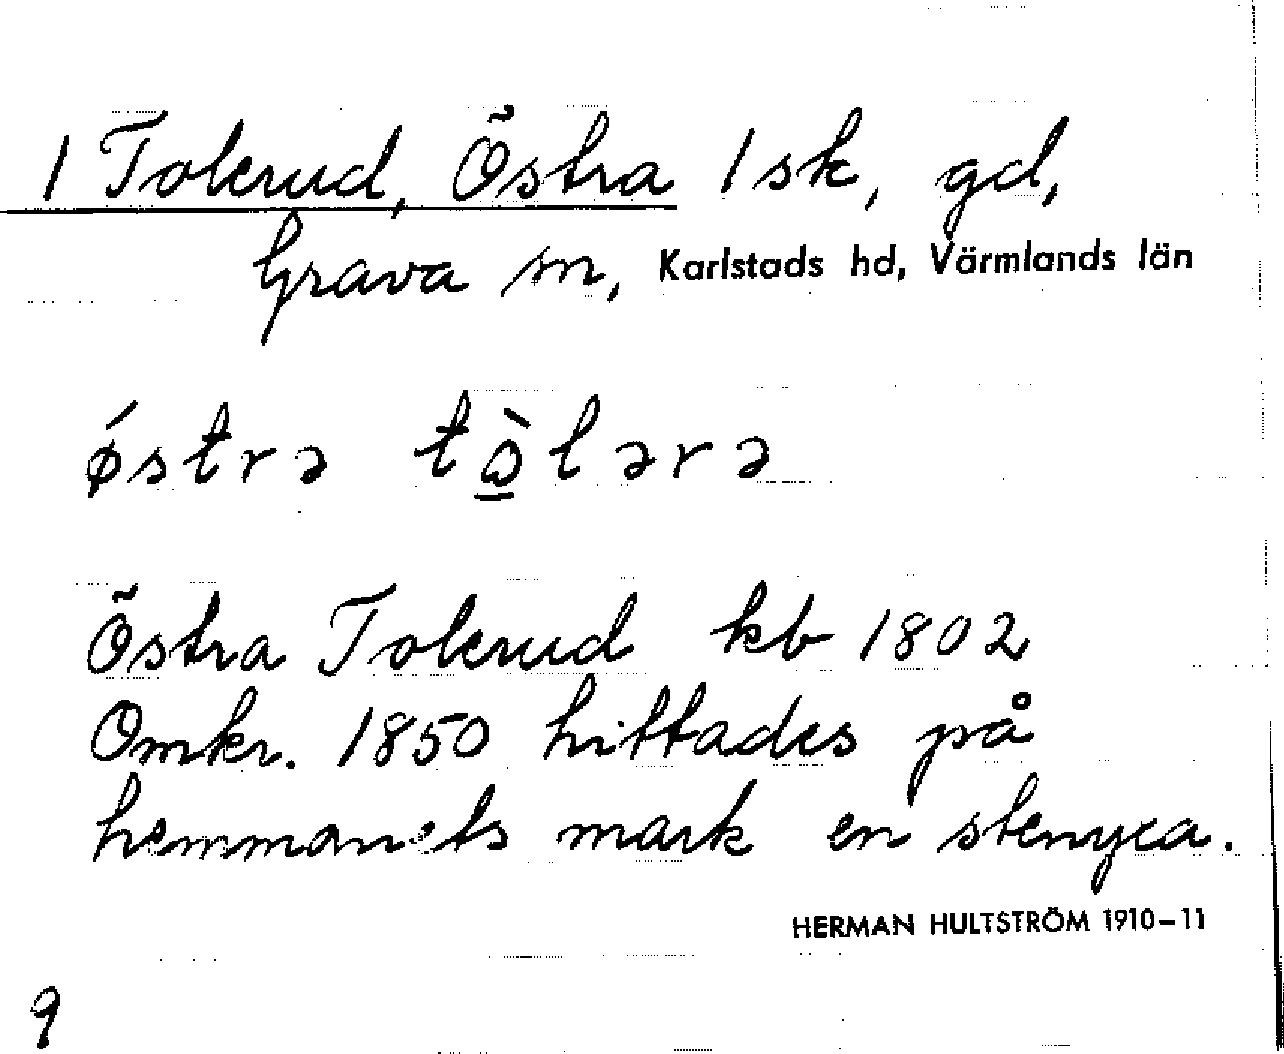 1 Tolerud, Östra 1 sk, gd,
Grava sn, Karlstads hd, Värmlands län
ǿstrə tɷ̲̀lərə
Östra Tolerud kb 1802
Omkr. 1850 hittades på
hemmanets mark en stenyxa.
HERMAN HULTSTRÖM 1910-11
9